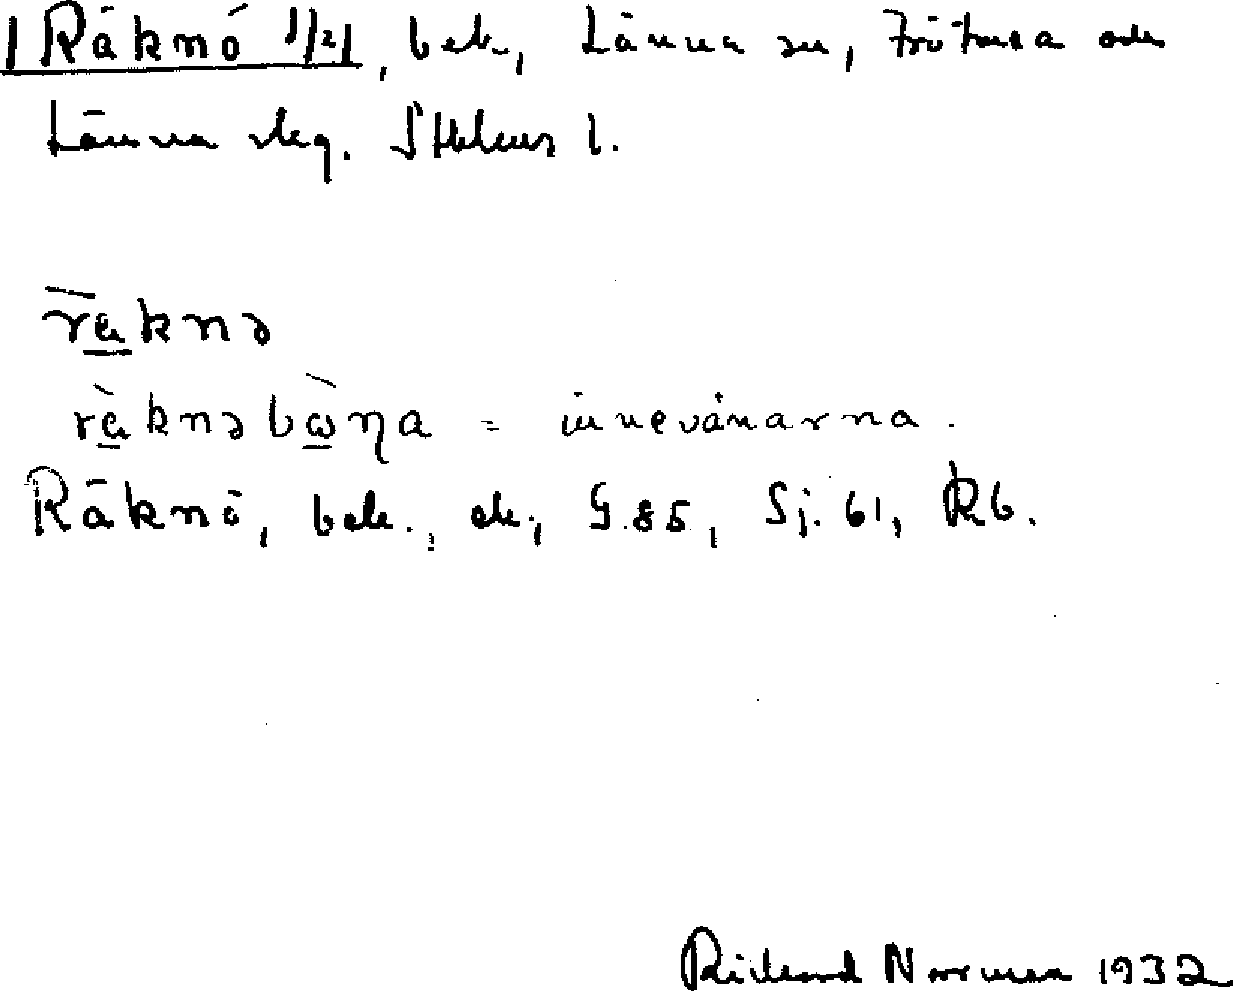 Räknö 1/21, bek., Länna sn, Frötuna och
Länna skg. Sthlms l.
räknə
rä̀knəbòηa = innevånarna.
Räknö, bek., ek., G.85, Sj. 61, Rb.
Rickard Norman 1932